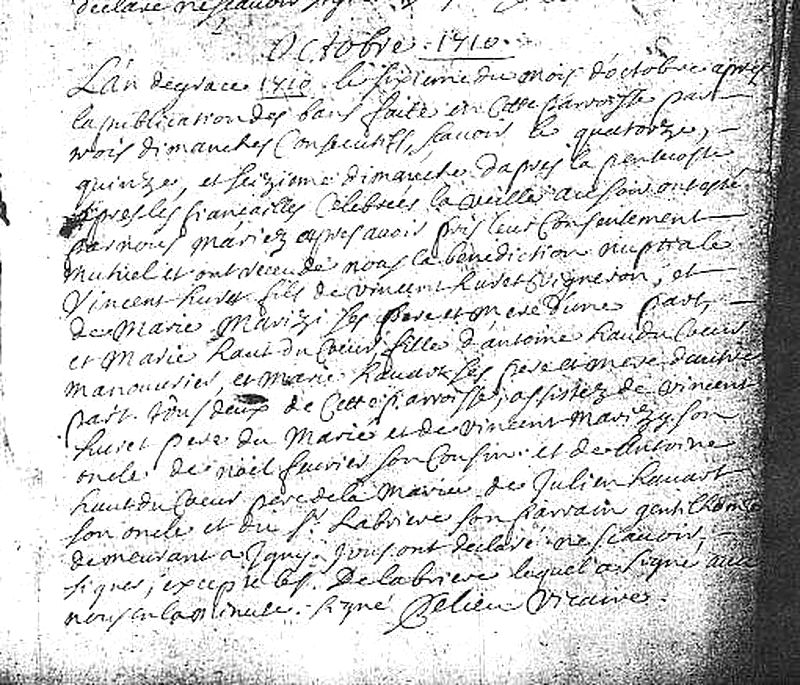 declare ne scavoir signer
Octobre 1710.
L'an de grace 1710. le sixieme du mois d'octobre apres
la publication des bans faite en cette parroisse par
trois dimanches consecutifs, scavoir le quatorze,
quinze, et seizieme dimanche d'apres la pentecoste
apres les fiançailles celebrées la veille au soir ont esté
par nous mariez apres avoir pris leur consentement
mutuel et ont receu de nous la benediction nuptiale
Vincent huret fils de vincent huret vigneron, et
de Marie Marizi ses pere et mere d'une part,
et Marie haut du Coeur, fille d'antoine haudu Coeur
manouvrier, et Marie havart ses pere et mere d'autre
part. tous deux de cette parroisse, assistez de vincent
huret pere du Marié et de vincent Marizy son
oncle, de noël son Cousin. et de Antoine
haut du Coeur pere de la Mariée de Julien havart
son oncle et du Sr. Labriere son parrain gentilhomme
demeurant a Igny. Tous ont declaré ne scavoir,
signer, excepté led. De labriere lequel a signé avec
nous en la minute. signé Vicaire.